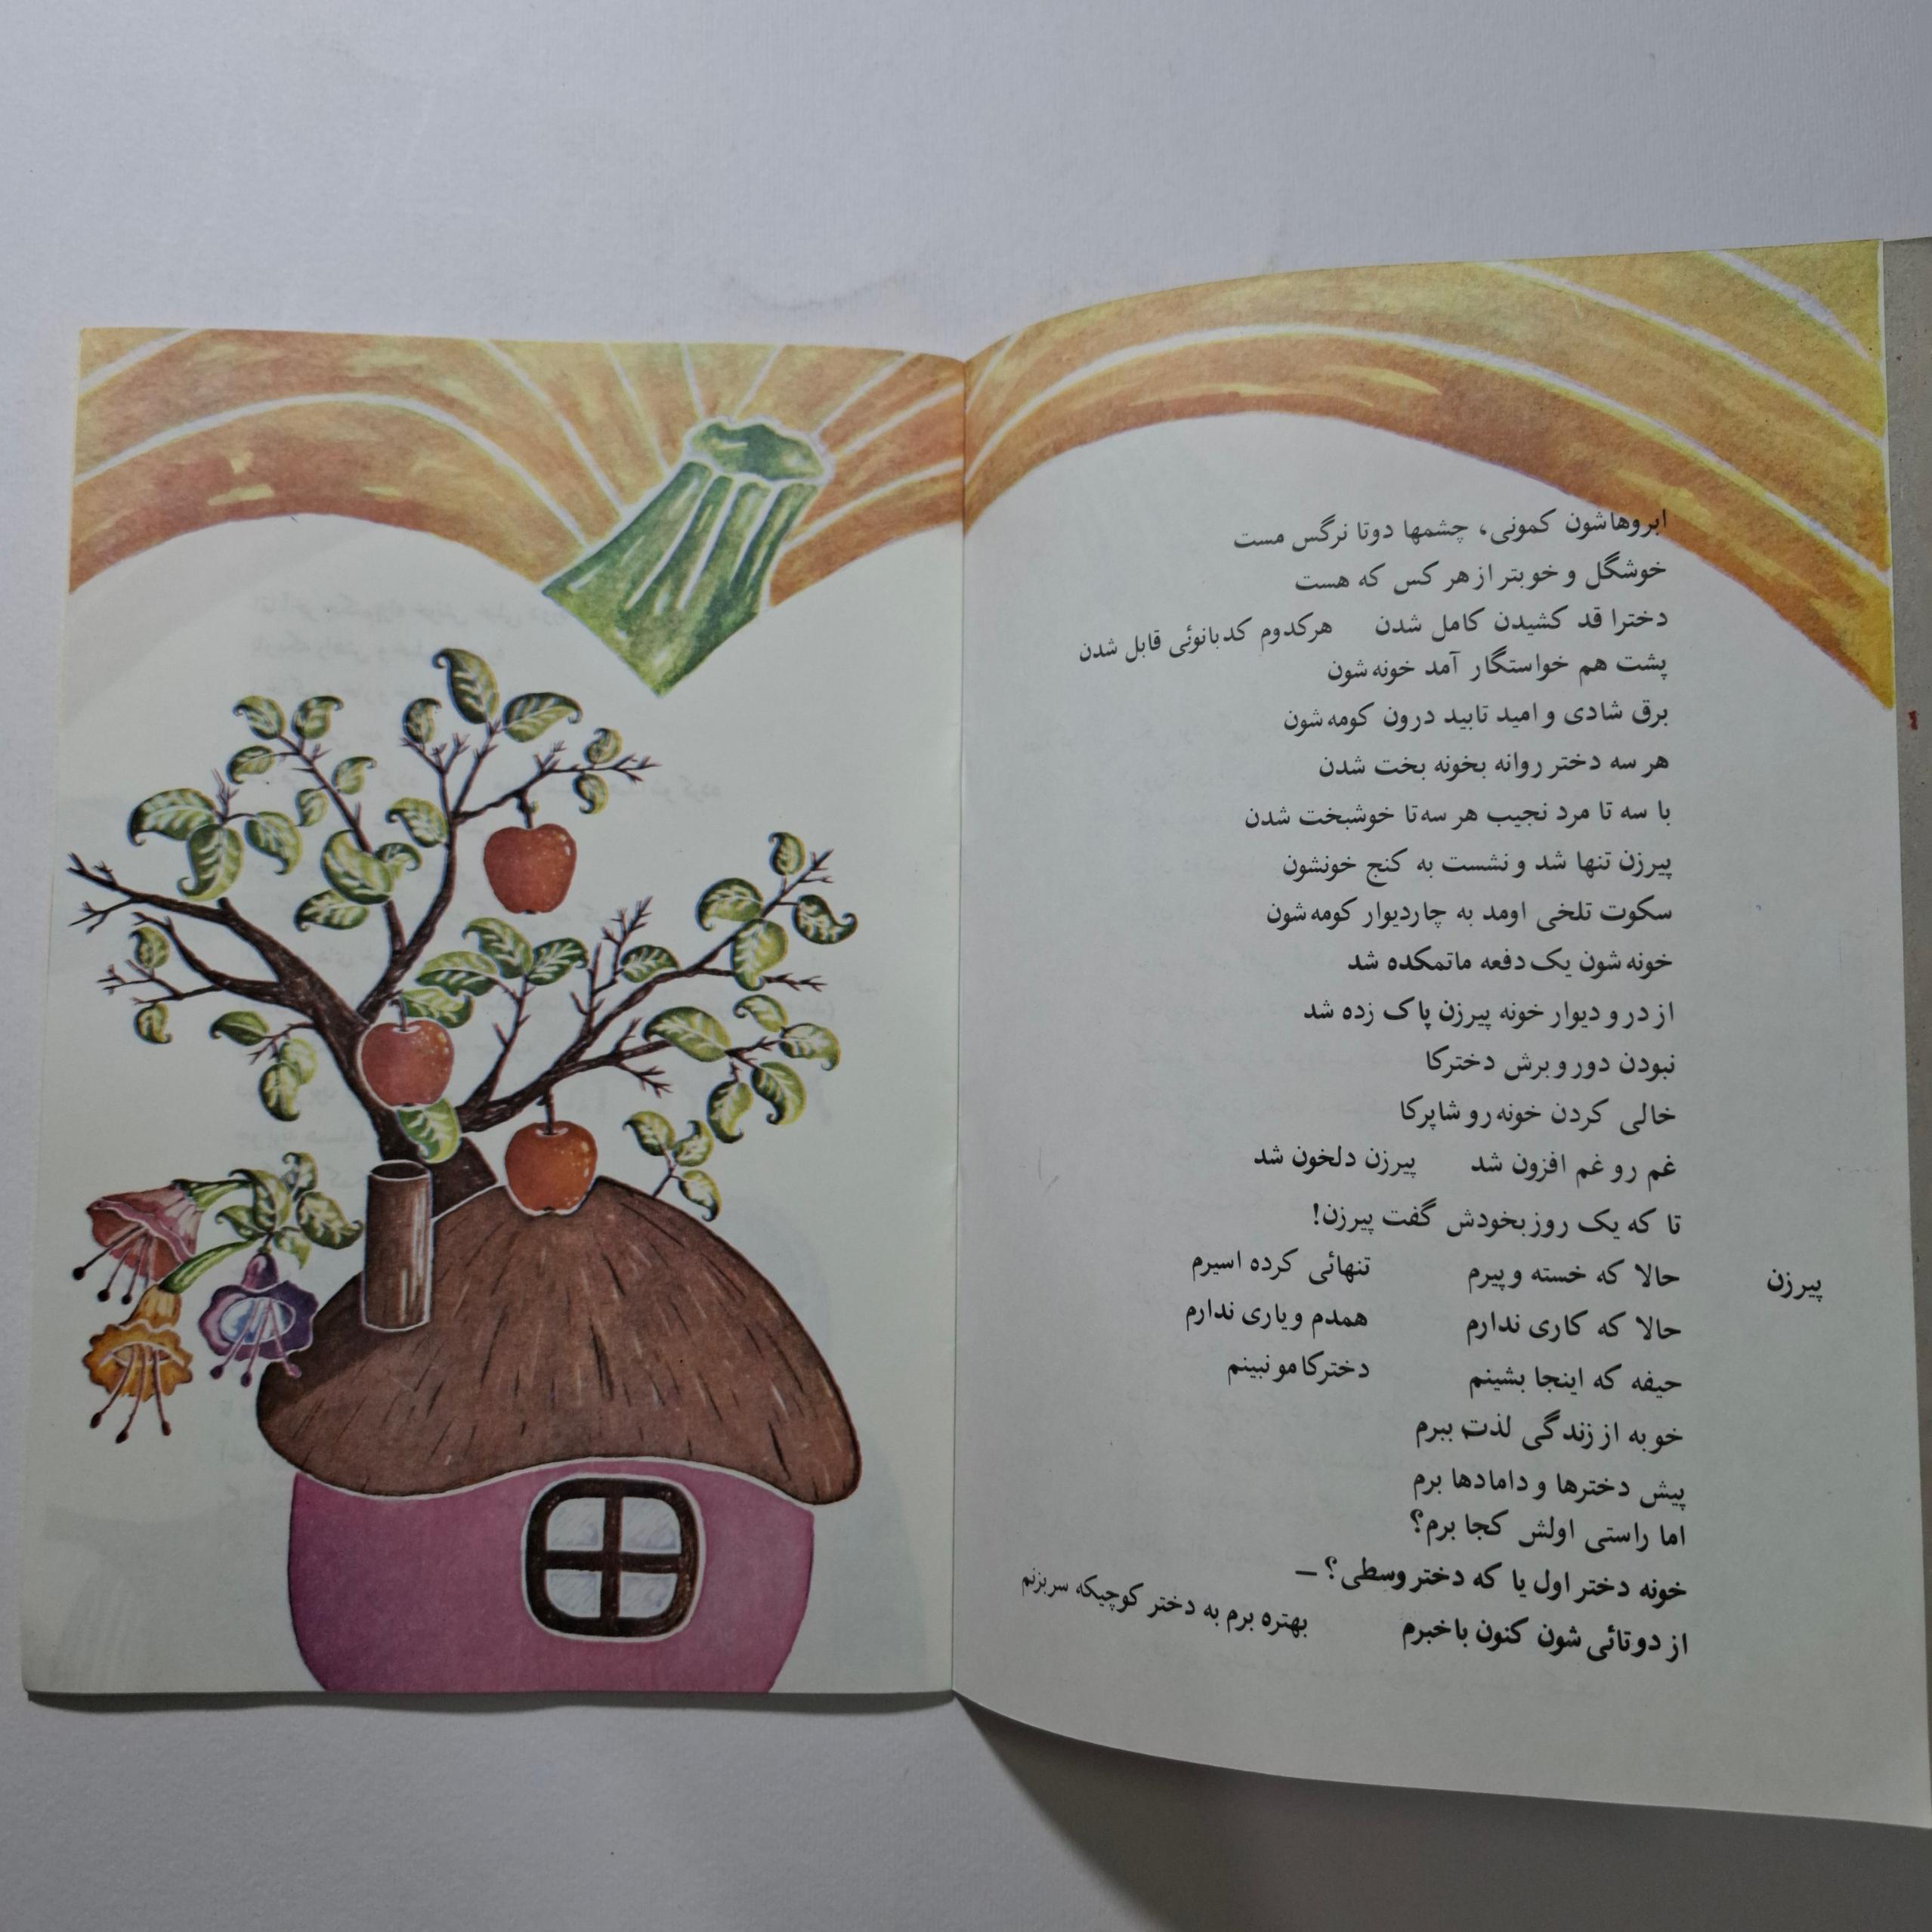 ابروهاشون کمونی، چشمها دوتا نرگس مست
خوشگل و خوبتر از هر کس که هست
دخترا قد کشیدن کامل شدن هرکدوم کدبانوئی قابل شدن
پشت هم خواستگار آمد خونه شون
برق شادی و امید تابید درون کومه شون
هر سه دختر روانه بخونه بخت شدن
با سه تا مرد نجیب هر سه تا خوشبخت شدن
پیرزن تنها شد و نشست به کنج خونشون
سکوت تلخی اومد به چاردیوار کومه شون
خونه شون یک دفعه ماتمکده شد
از در و دیوار خونه پیرزن پاک زده شد
نبودن دور و برش دخترکا
خالی کردن خونه رو شاپرکا
غم رو غم افزون شد پیرزن دلخون شد
تا که یک روز بخودش گفت پیرزن!
پیرزن حالا که خسته و پیرم تنهائی کرده اسیرم
حالا که کاری ندارم همدم و یاری ندارم
حیفه که اینجا بشینم دخترکامو نبینم
خوبه از زندگی لذت ببرم
پیش دخترها و دامادها برم
اما راستی اولش کجا برم؟
خونه دختر اول یا که دختر وسطی؟ —
از دوتائی شون کنون باخبرم بهتره برم به دختر کوچیکه سربزنم